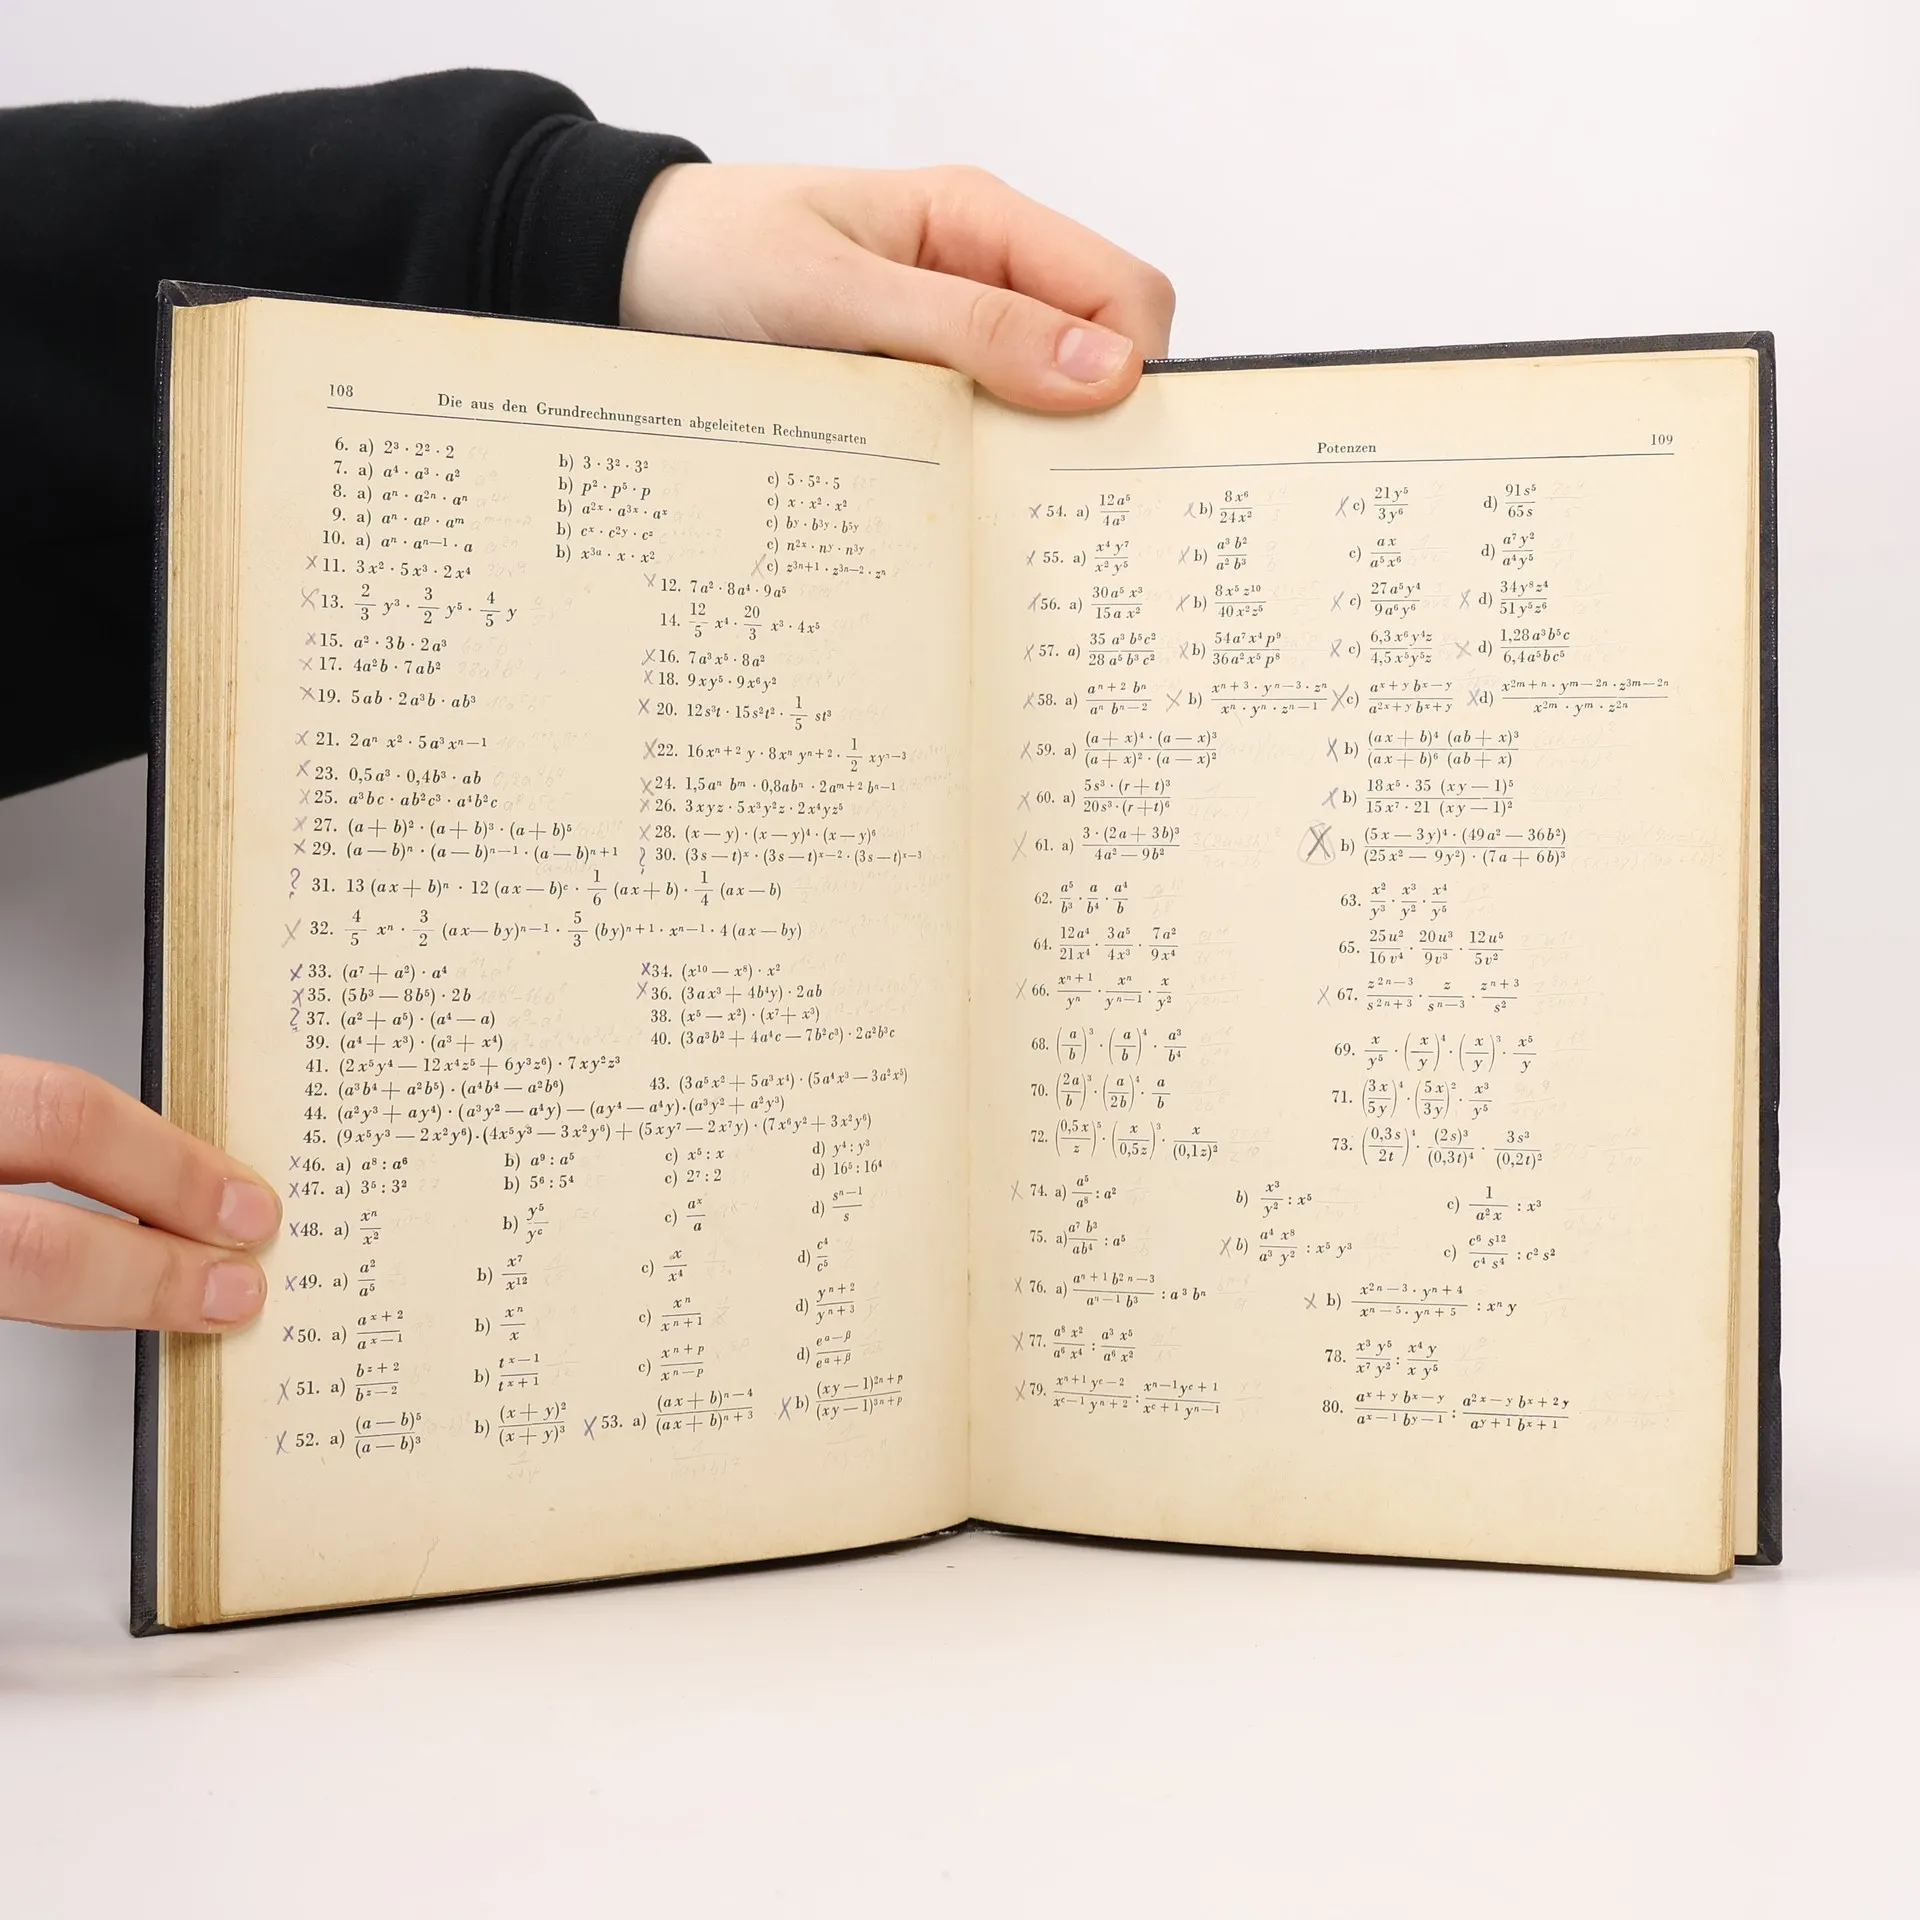 108 Die aus den Grundrechnungsarten abgeleiteten Rechnungsarten
6. a) 2³ · 2² · 2 b) 3 · 3² · 3² c) 5 · 5² · 5
7. a) a⁴ · a³ · a² b) p² · p⁵ · p c) x · x² · x²
8. a) aⁿ · a²ⁿ · aⁿ b) a²ˣ · a³ˣ · aˣ c) bʸ · b³ʸ · b⁵ʸ
9. a) aⁿ · aᵖ · aᵐ b) cˣ · c²ʸ · cᶻ c) n²ˣ · nʸ · n³ʸ
10. a) aⁿ · aⁿ⁻¹ · a b) x³ᵃ · x · x² c) z³ⁿ⁺¹ · z³ⁿ⁻² · zⁿ
11. 3x² · 5x³ · 2x⁴ 12. 7a² · 8a⁴ · 9a⁵
13. 2/3 y³ · 3/2 y⁵ · 4/5 y 14. 12/5 x⁴ · 20/3 x³ · 4x⁵
15. a² · 3b · 2a³ 16. 7a³x⁵ · 8a²
17. 4a²b · 7ab² 18. 9xy⁵ · 9x⁶y²
19. 5ab · 2a³b · ab³ 20. 12s³t · 15s²t² · 1/5 st³
21. 2aⁿ x² · 5a³xⁿ⁻¹ 22. 16xⁿ⁺² y · 8xⁿ yⁿ⁺² · 1/2 xyⁿ⁻³
23. 0,5a³ · 0,4b³ · ab 24. 1,5aⁿ bᵐ · 0,8abⁿ · 2aᵐ⁺² bⁿ⁻¹
25. a³bc · ab²c³ · a⁴b²c 26. 3xyz · 5x³y²z · 2x⁴yz⁵
27. (a + b)² · (a + b)³ · (a + b)⁵ 28. (x — y) · (x — y)⁴ · (x — y)⁶
29. (a — b)ⁿ · (a — b)ⁿ⁻¹ · (a — b)ⁿ⁺¹ 30. (3s — t)ˣ · (3s — t)ˣ⁻² · (3s — t)ˣ⁻³
31. 13 (ax + b)ⁿ · 12 (ax — b)ᶜ · 1/6 (ax + b) · 1/4 (ax — b)
32. 4/5 xⁿ · 3/2 (ax — by)ⁿ⁻¹ · 5/3 (by)ⁿ⁺¹ · xⁿ⁻¹ · 4 (ax — by)
33. (a⁷ + a²) · a⁴ 34. (x¹⁰ — x⁸) · x²
35. (5b³ — 8b⁵) · 2b 36. (3ax³ + 4b⁴y) · 2ab
37. (a² + a⁵) · (a⁴ — a) 38. (x⁵ — x²) · (x⁷ + x³)
39. (a⁴ + x³) · (a³ + x⁴) 40. (3a³b² + 4a⁴c — 7b²c³) · 2a²b³c
41. (2x⁵y⁴ — 12x⁴z⁵ + 6y³z⁶) · 7xy²z³
42. (a³b⁴ + a²b⁵) · (a⁴b⁴ — a²b⁶) 43. (3a⁵x² + 5a³x⁴) · (5a⁴x³ — 3a²x⁵)
44. (a²y³ + ay⁴) · (a³y² — a⁴y) — (ay⁴ — a⁴y) · (a³y² + a²y³)
45. (9x⁵y³ — 2x²y⁶) · (4x⁵y³ — 3x²y⁶) + (5xy⁷ — 2x⁷y) · (7x⁶y² + 3x²y⁶)
46. a) a⁸ : a⁶ b) a⁹ : a⁵ c) x⁵ : x d) y⁴ : y³
47. a) 3⁵ : 3² b) 5⁶ : 5⁴ c) 2⁷ : 2 d) 16⁵ : 16⁴
48. a) xⁿ/x² b) y⁵/yᶜ c) aˣ/a d) sⁿ⁻¹/s
49. a) a²/a⁵ b) x⁷/x¹² c) x/x⁴ d) c⁴/c⁵
50. a) aˣ⁺²/aˣ⁻¹ b) xⁿ/x c) xⁿ/xⁿ⁺¹ d) yⁿ⁺²/yⁿ⁺³
51. a) bᶻ⁺²/bᶻ⁻² b) tˣ⁻¹/tˣ⁺¹ c) xⁿ⁺ᵖ/xⁿ⁻ᵖ d) eᵅ⁻ᵝ/eᵅ⁺ᵝ
52. a) (a — b)⁵/(a — b)³ b) (x + y)²/(x + y)³ 53. a) (ax + b)ⁿ⁻⁴/(ax + b)ⁿ⁺³ b) (xy — 1)²ⁿ⁺ᵖ/(xy — 1)³ⁿ⁺ᵖ
Potenzen 109
54. a) 12a⁵/4a³ b) 8x⁶/24x² c) 21y⁵/3y⁶ d) 91s⁵/65s
55. a) x⁴y⁷/x²y⁵ b) a³b²/a²b³ c) ax/a⁵x⁶ d) a⁷y²/a⁴y⁵
56. a) 30a⁵x³/15ax² b) 8x⁵z¹⁰/40x²z⁵ c) 27a⁵y⁴/9a⁶y⁶ d) 34y⁸z⁴/51y⁵z⁶
57. a) 35a³b⁵c²/28a⁵b³c² b) 54a⁷x⁴p⁹/36a²x⁵p⁸ c) 6,3x⁶y⁴z/4,5x⁵y⁵z d) 1,28a³b⁵c/6,4a⁵bc⁵
58. a) aⁿ⁺²bⁿ/aⁿbⁿ⁻² b) xⁿ⁺³ · yⁿ⁻³ · zⁿ/xⁿ · yⁿ · zⁿ⁻¹ c) aˣ⁺ʸbˣ⁻ʸ/a²ˣ⁺ʸbˣ⁺ʸ d) x²ᵐ⁺ⁿ · yᵐ⁻²ⁿ · z³ᵐ⁻²ⁿ/x²ᵐ · yᵐ · z²ⁿ
59. a) (a + x)⁴ · (a — x)³/(a + x)² · (a — x)² b) (ax + b)⁴ (ab + x)³/(ax + b)⁶ (ab + x)
60. a) 5s³ · (r + t)³/20s³ · (r + t)⁶ b) 18x⁵ · 35 (xy — 1)⁵/15x⁷ · 21 (xy — 1)²
61. a) 3 · (2a + 3b)³/4a² — 9b² b) (5x — 3y)⁴ · (49a² — 36b²)/(25x² — 9y²) · (7a + 6b)³
62. a⁵/b³ · a/b⁴ · a⁴/b 63. x²/y³ · x³/y² · x⁴/y⁵
64. 12a⁴/21x⁴ · 3a⁵/4x³ · 7a²/9x⁴ 65. 25u²/16v⁴ · 20u³/9v³ · 12u⁵/5v²
66. xⁿ⁺¹/yⁿ · xⁿ/yⁿ⁻¹ · x/y² 67. z²ⁿ⁻³/s²ⁿ⁺³ · z/sⁿ⁻³ · zⁿ⁺³/s²
68. (a/b)³ · (a/b)⁴ · a³/b⁴ 69. x/y⁵ · (x/y)⁴ · (x/y)³ · x⁵/y
70. (2a/b)³ · (a/2b)⁴ · a/b 71. (3x/5y)⁴ · (5x/3y)² · x³/y⁵
72. (0,5x/z)⁵ · (x/0,5z)³ · x/(0,1z)² 73. (0,3s/2t)⁴ · (2s)³/(0,3t)⁴ · 3s³/(0,2t)²
74. a) a⁵/a⁸ : a² b) x³/y² : x⁵ c) 1/a²x : x³
75. a) a⁷b³/ab⁴ : a⁵ b) a⁴x⁸/a³y² : x⁵y³ c) c⁶s¹²/c⁴s⁴ : c²s²
76. a) aⁿ⁺¹b²ⁿ⁻³/aⁿ⁻¹b³ : a³bⁿ b) x²ⁿ⁻³ · yⁿ⁺⁴/xⁿ⁻⁵ · yⁿ⁺⁵ : xⁿy
77. a⁸x²/a⁶x⁴ : a³x⁵/a⁶x² 78. x³y⁵/x⁷y² : x⁴y/xy⁵
79. xⁿ⁺¹yᶜ⁻²/xᶜ⁻¹yⁿ⁺² : xⁿ⁻¹yᶜ⁺¹/xᶜ⁺¹yⁿ⁻¹ 80. aˣ⁺ʸbˣ⁻ʸ/aˣ⁻¹bʸ⁻¹ : a²ˣ⁻ʸbˣ⁺²ʸ/aʸ⁺¹bˣ⁺¹